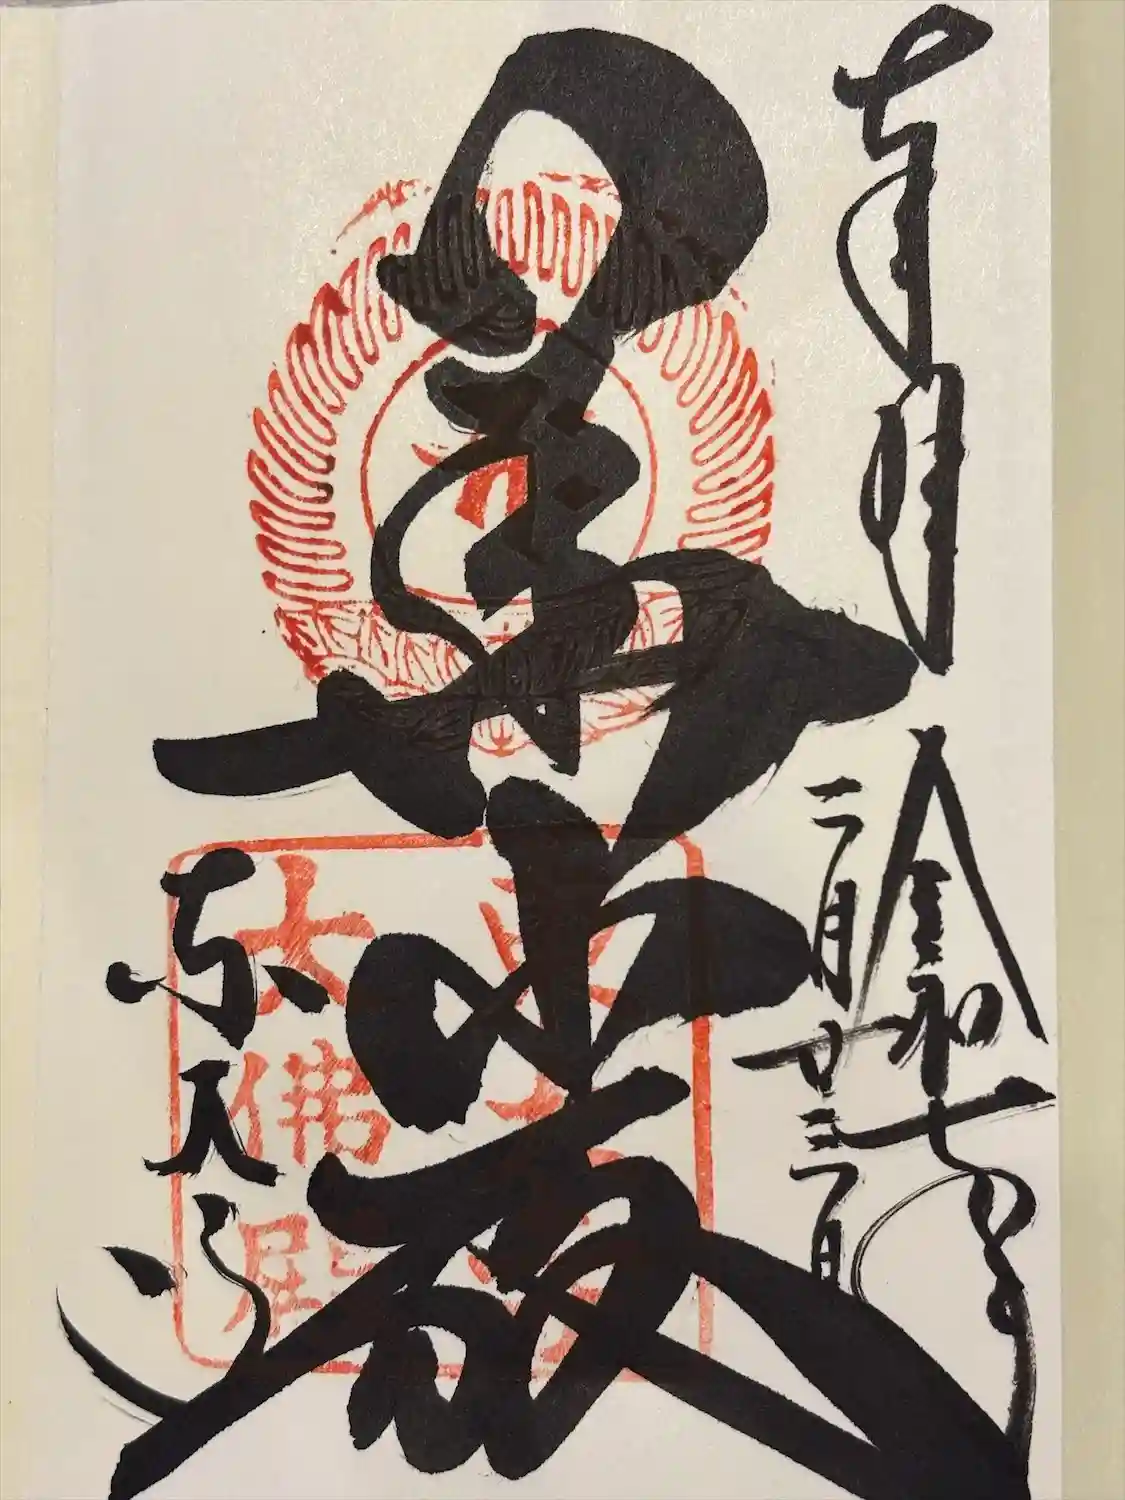 奉拝
令和七年
二月廿三日
華厳
東大寺
東大寺
大佛殿